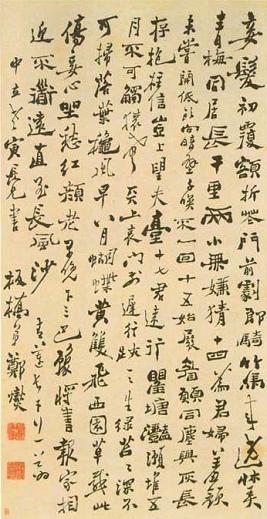 妾髮初覆額折花門前劇郎騎竹馬来遶牀弄
青梅同居長干里兩小無嫌猜十四為君婦羞顔
未嘗開低頭向暗壁千喚不一回十五始展眉願同塵與灰長
存抱柱信豈上望夫臺十六君遠行瞿塘灩澦堆五
月不可觸猿聲天上哀門前遲行跡一一生緑苔苔深不
可掃落葉秋風早八月蝴蝶黄雙飛西園草感此
傷妾心坐愁紅顔老早晚下三巴豫將書報家相
迎不道遠直至長風沙 李白長干行一首為
中立 寅兄書 板橋鄭燮